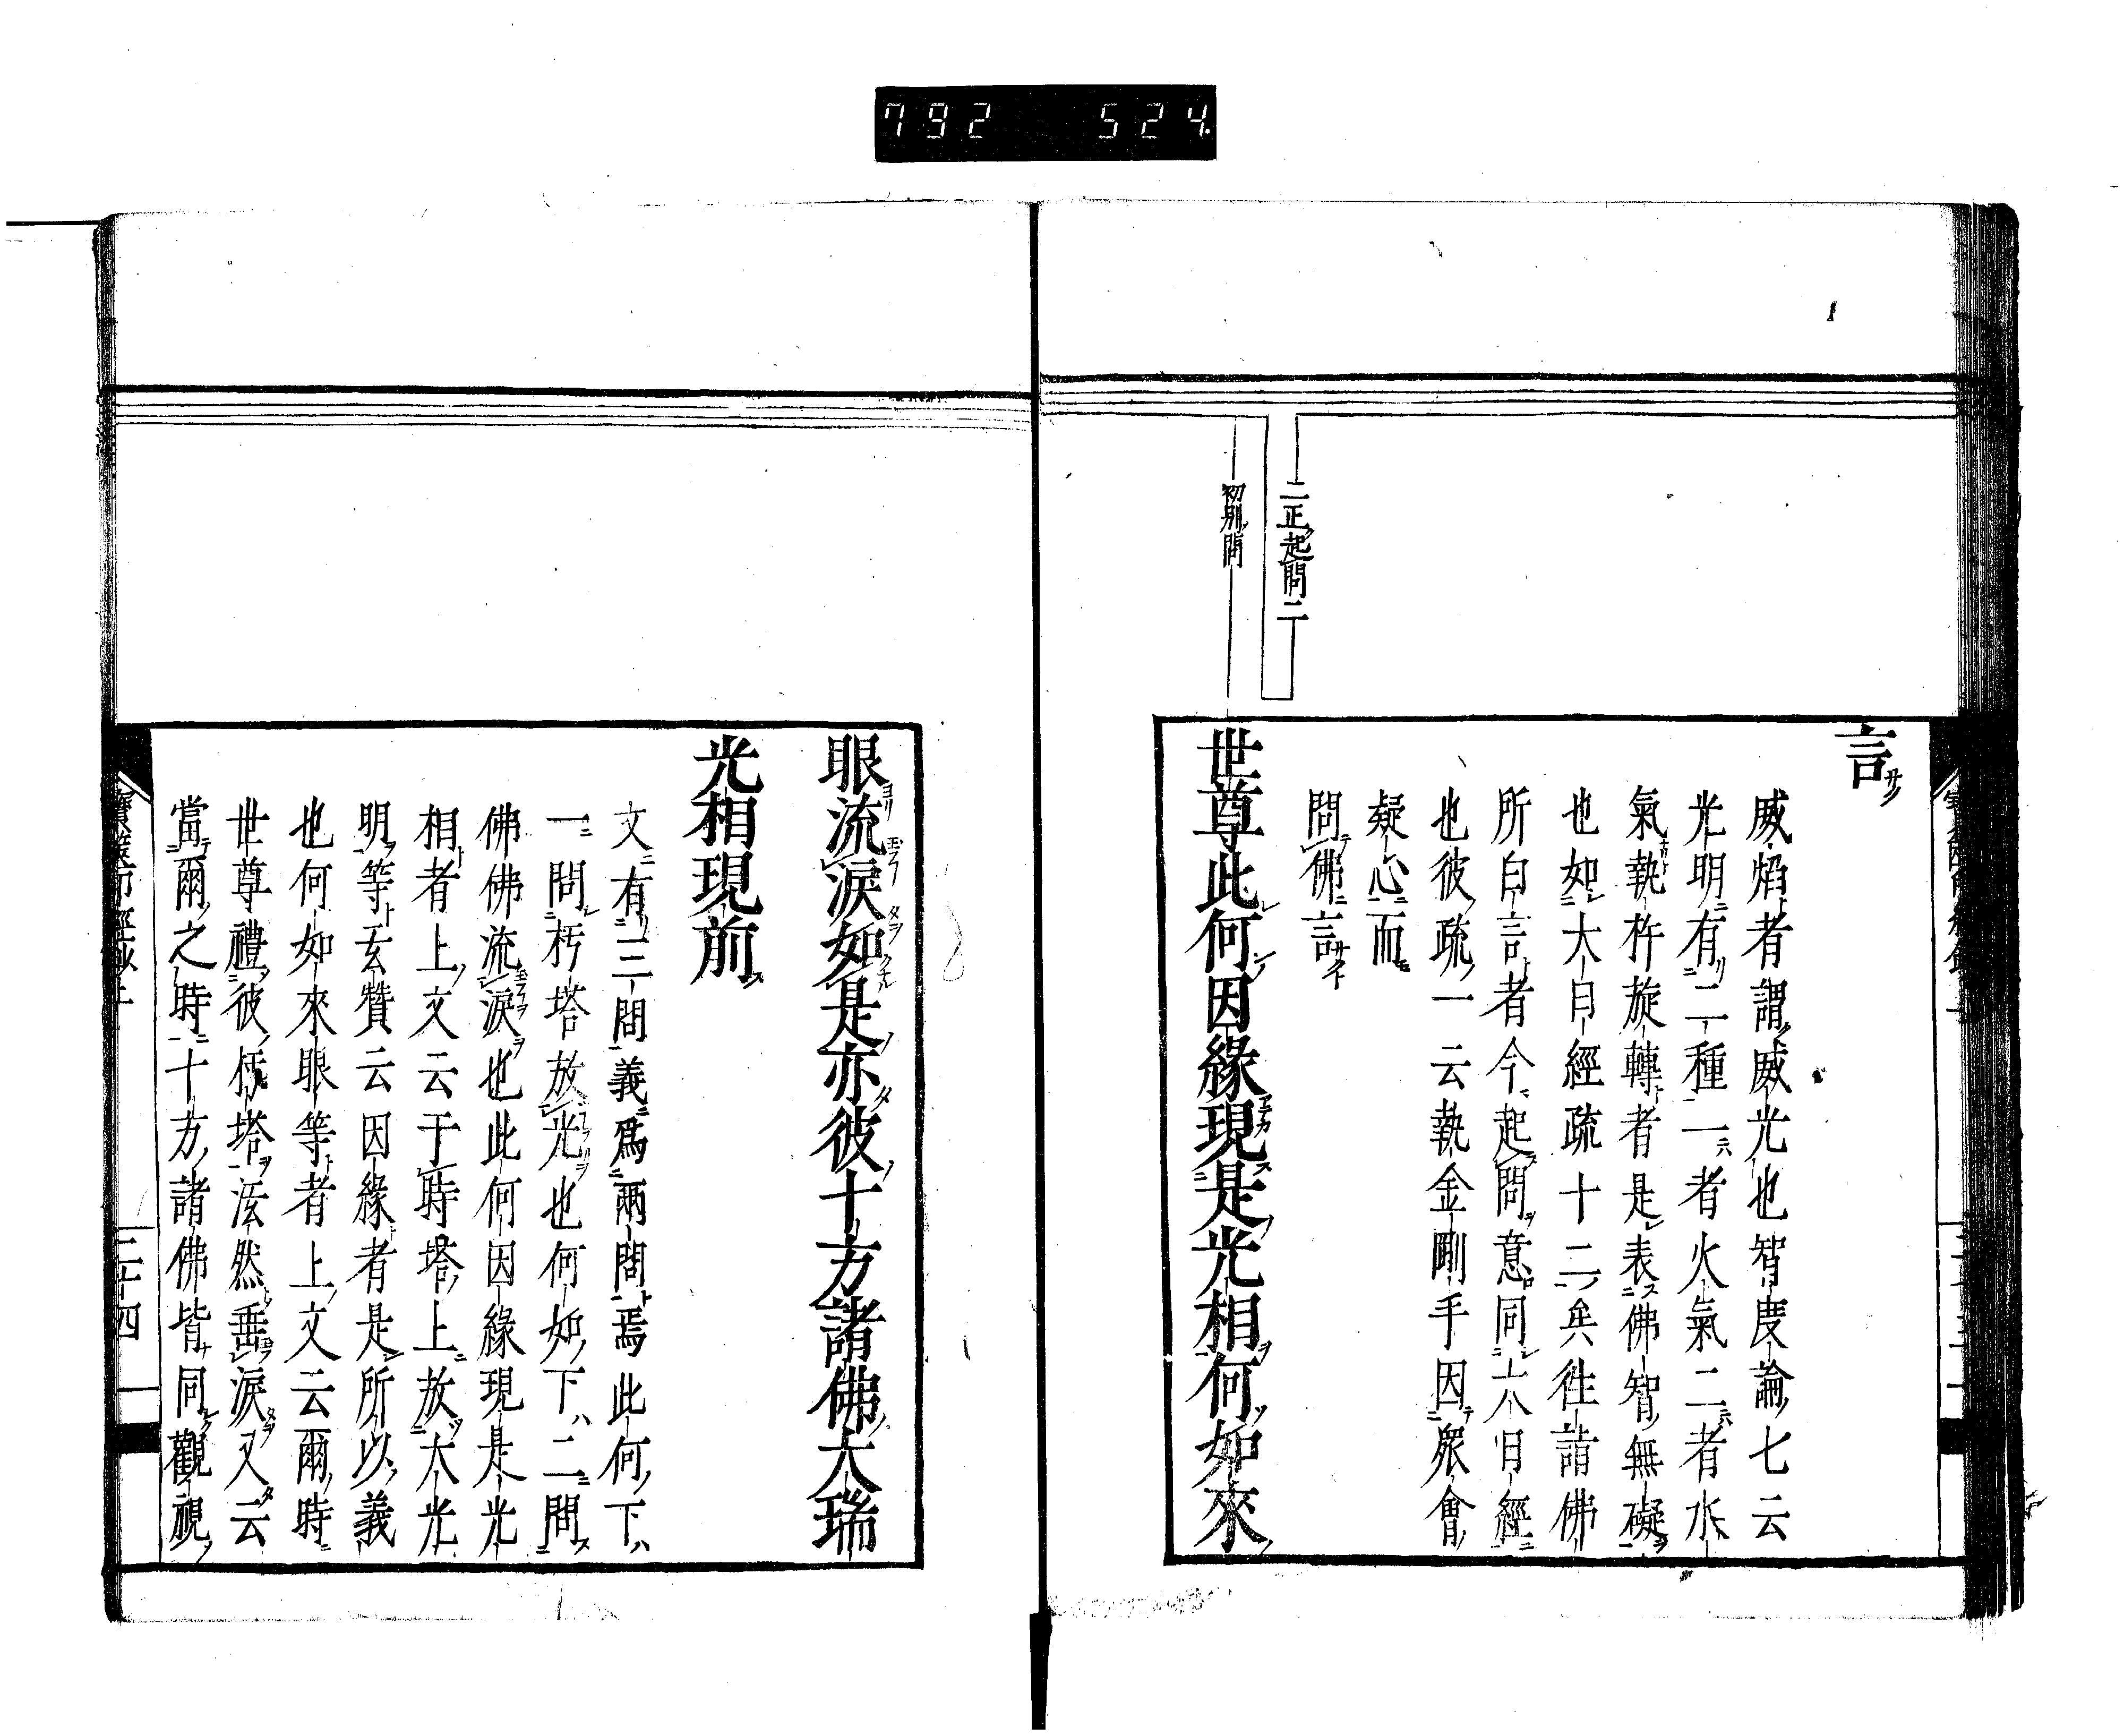 792 524.
二正起問二
初別問
言
威焰者謂威光也智度論七云
光明有二種一者火氣二者水
氣執杵旋轉者是表佛智無礙
也如大日經疏十二矣往詣佛
所白言者今起問意同大日經
也彼疏一云執金剛手因眾會
疑心而
問佛言
世尊此何因緣現是光相何如來
眼流淚如是亦彼十方諸佛大瑞
光相現前
文有三問義為兩問焉此何下
一問朽塔放光也何如下二問
佛佛流淚也此何因緣現是光
相者上文云于時塔上放大光
明等玄贊云因緣者是所以義
也何如來眼等者上文云爾時
世尊禮彼朽塔泫然垂淚又云
當爾之時十方諸佛皆同觀視
二十四